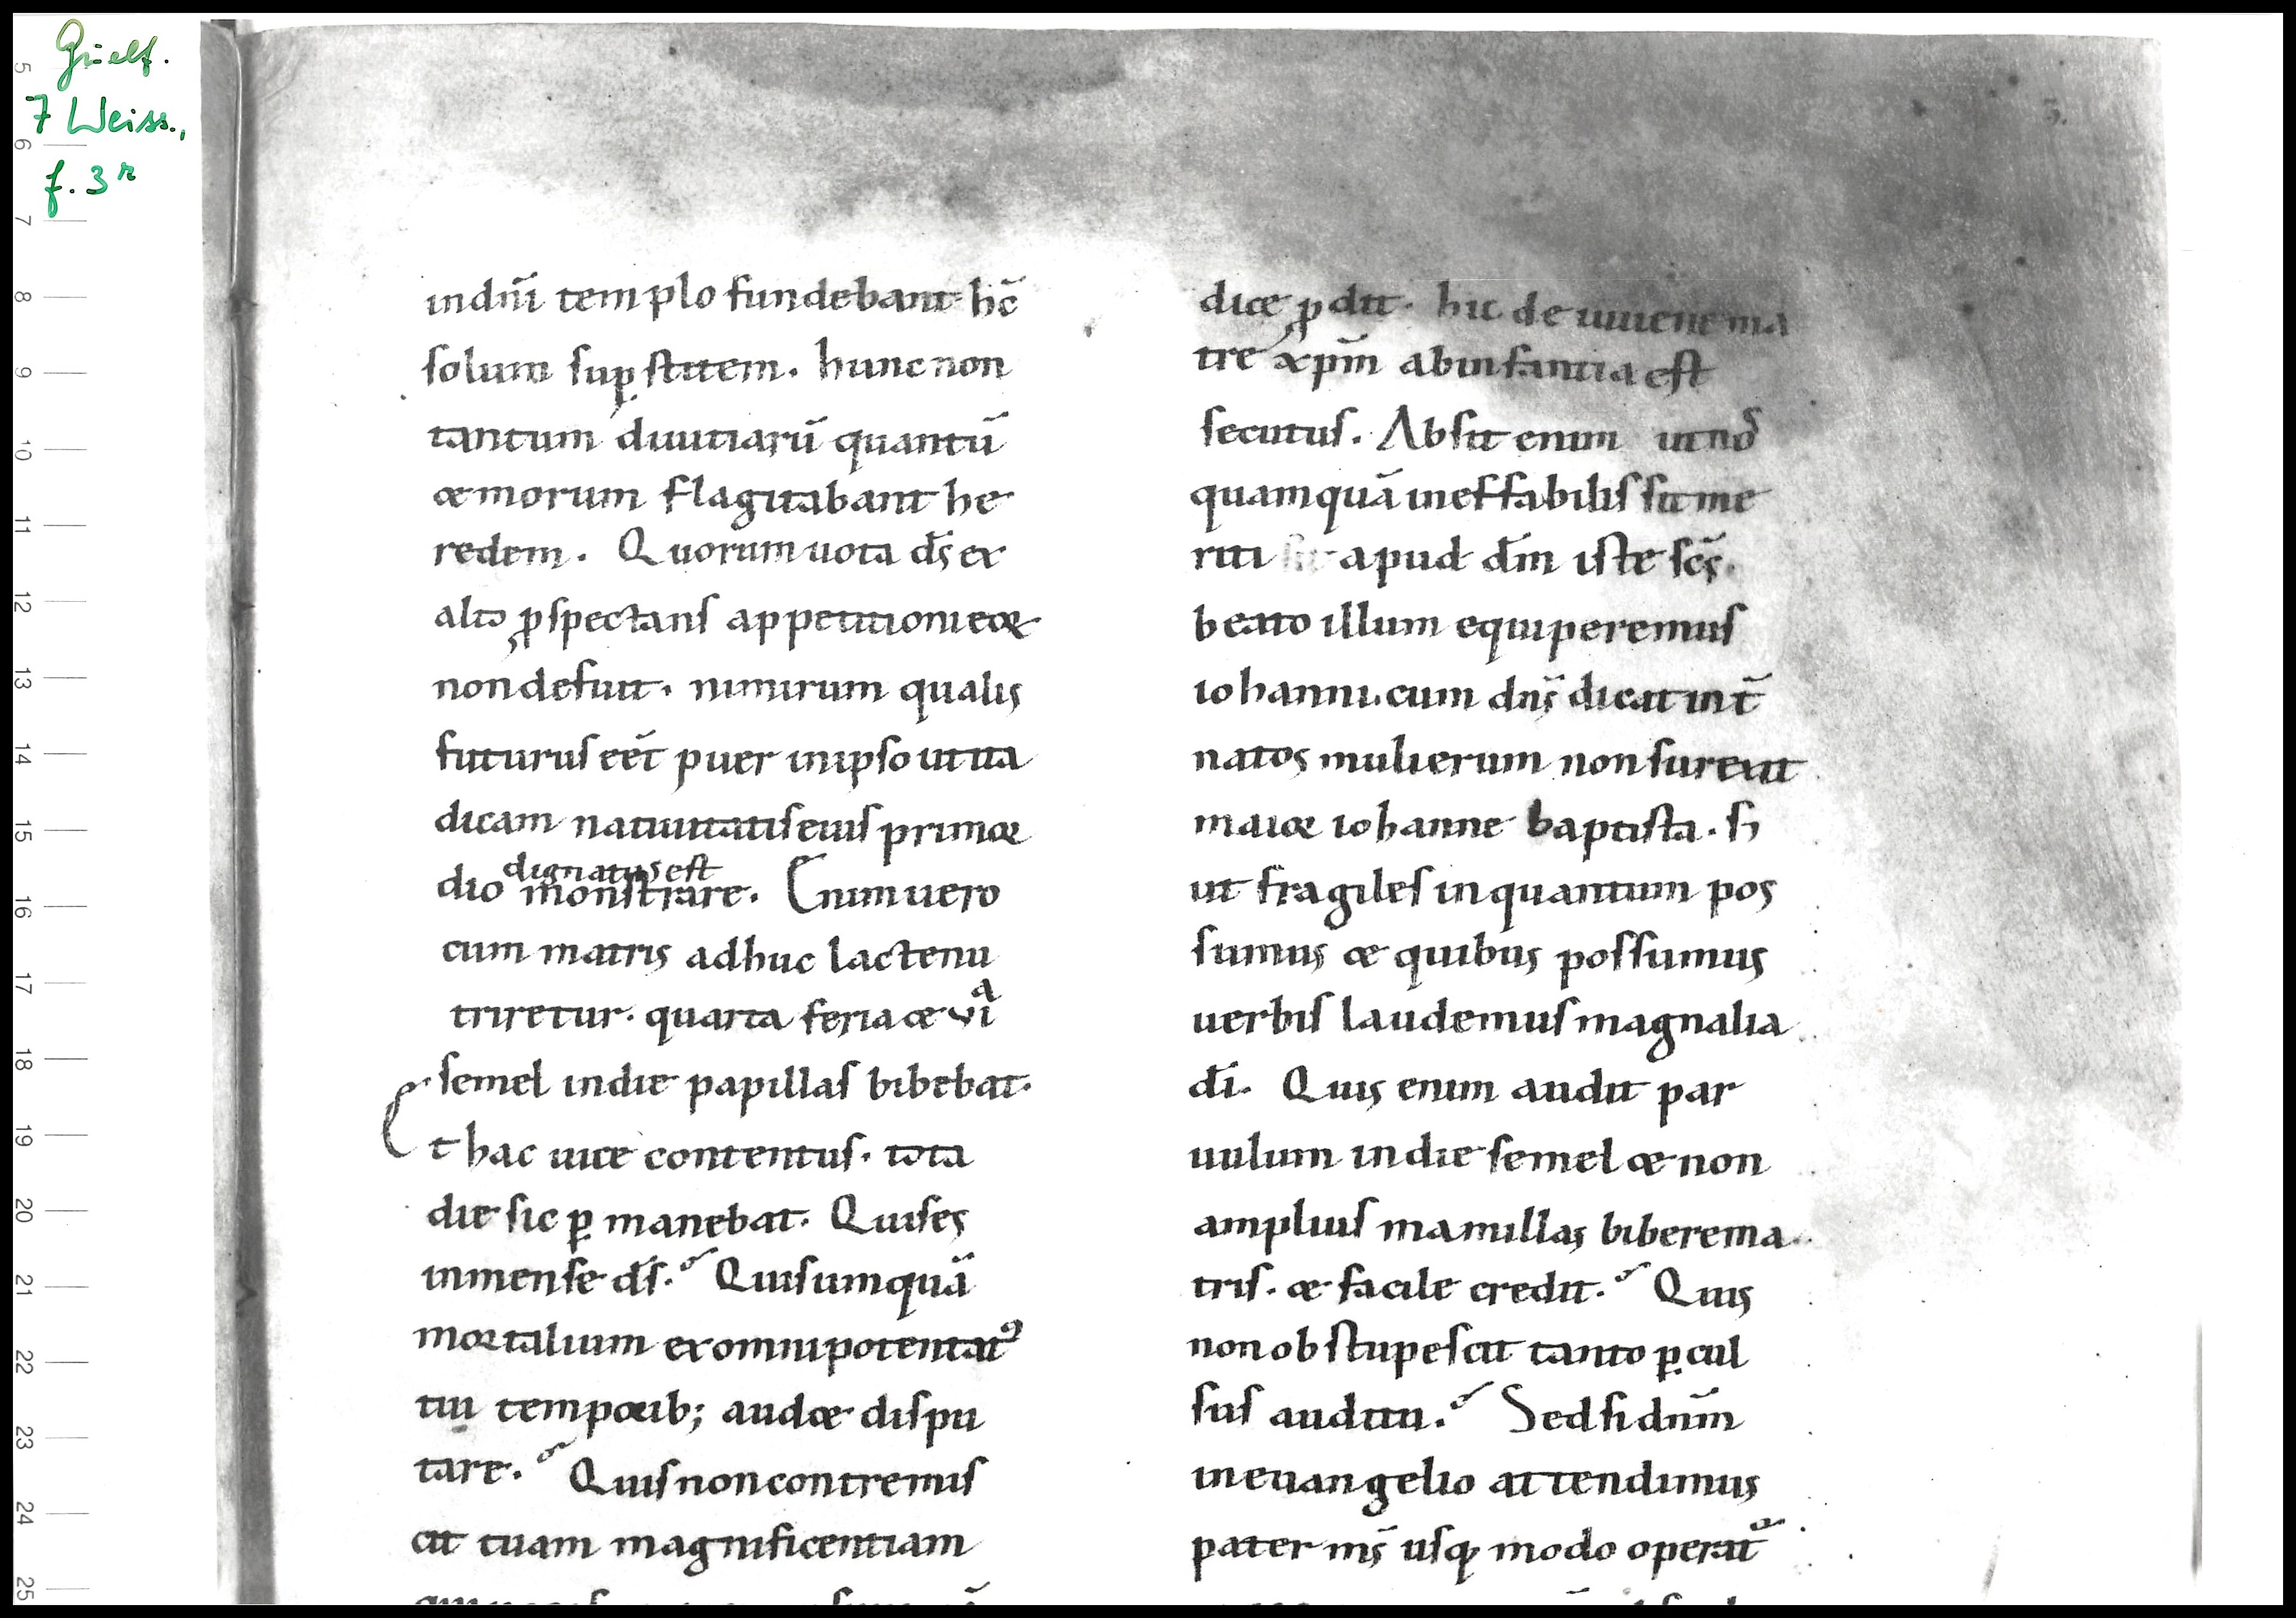 Guelf.
7 Weiss.,
f. 3r
3.
in dn̄i templo fundebant hc̄
solum sup̱stitem. hunc non
tantum diuitiarū quantū
&morum flagitabant he
redem. Quorum uota d̄s ex
alto ꝓspectans appetitioni eoꝝ
non defuit. nimirum qualis
futurus eēt puer in ipso ut ita
dicam natiuitatis eius primor
dio dignatus est monstrare. Enim uero
cum matris adhuc lacte nu
triretur. quarta feria & vi^a
semel in die papillas bibebat.
Et hac uice contentus. tota
die sic ꝑmanebat. Quis es
inmense d̄s? Quis umquā
mortalium ex omnipotentatꝰ
tui temporib; aud& dispu
tare? Quis non contremis
cit tuam magnificentiam
dice ꝓdiit. hic de iuuene ma
tre xp̄m ab infantia est
secutus. Absit enim ut nos
quamquā ineffabilis sit me
riti apud dm̄ iste sc̄s.
beato illum equiperemus
iohanni. cum dn̄s dicat int̄
natos mulierum non surexit
maior iohanne baptista. s̄
ut fragiles in quantum pos
sumus & quibus possumus
uerbis laudemus magnalia
dī. Quis enim audit par
uulum in die semel & non
amplius mamillas bibere ma
tris. & facile credit? Quis
non obstupescit tanto ꝑcul
sus auditu? Sed si dn̄m
in euangelio attendimus
pater ms̄ usq; modo operat᷑